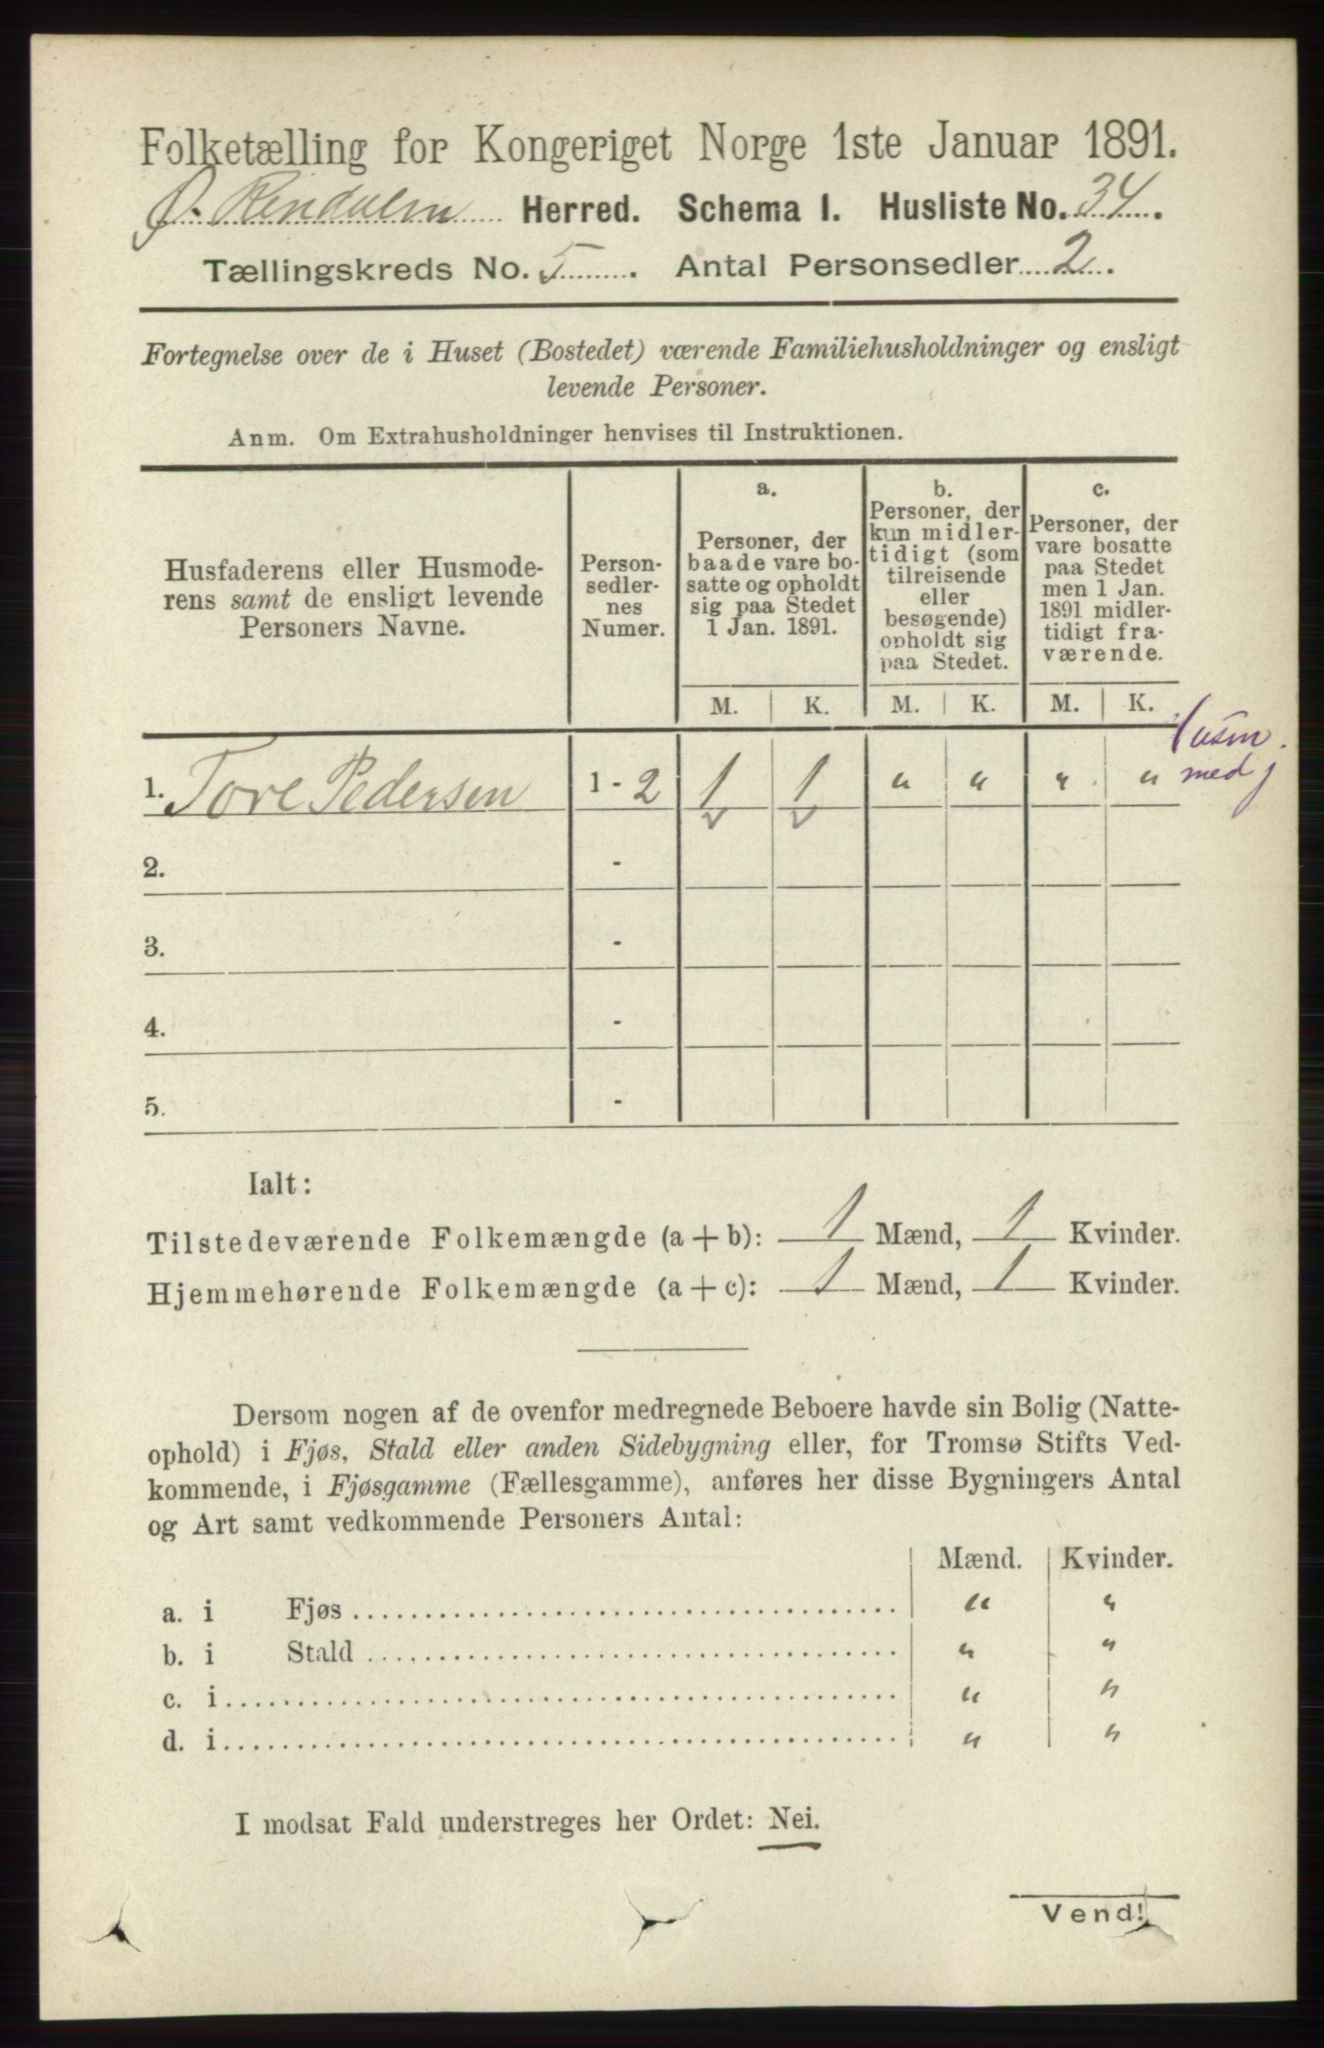 Folketælling for Kongeriget Norge 1ste Januar 1891.
Ø. Rendalen Herred. Schema I. Husliste No. 34.
Tællingskreds No. 5. Antal Personsedler 2.
Fortegnelse over de i Huset (Bostedet) værende Familiehusholdninger og ensligt
levende Personer.
Anm. Om Extrahusholdninger henvises til Instruktionen.
Husfaderens eller Husmode-
rens samt de ensligt levende
Personers Navne.
Person-
sedler-
nes
Numer.
a.
Personer, der
baade vare bo-
satte og opholdt
sig paa Stedet
1 Jan. 1891.
b.
Personer, der
kun midler-
tidigt (som
tilreisende
eller
besøgende)
opholdt sig
paa Stedet.
c.
Personer, der
vare bosatte
paa Stedet
men 1 Jan.
1891 midler-
tidigt fra-
værende.
M. K. M. K. M. K.
Husm.
med j
1. Tore Pedersen 1 - 2 1 1 " " " "
2. -
3. -
4. -
5. -
Ialt:
Tilstedeværende Folkemængde (a + b): 1 Mænd, 1 Kvinder.
Hjemmehørende Folkemængde (a + c): 1 Mænd, 1 Kvinder.
Dersom nogen af de ovenfor medregnede Beboere havde sin Bolig (Natte-
ophold) i Fjøs, Stald eller anden Sidebygning eller, for Tromsø Stifts Ved-
kommende, i Fjøsgamme (Fællesgamme), anføres her disse Bygningers Antal
og Art samt vedkommende Personers Antal:
Mænd. Kvinder.
a. i Fjøs " "
b. i Stald " "
c. i " "
d. i " "
I modsat Fald understreges her Ordet: Nei.
Vend!